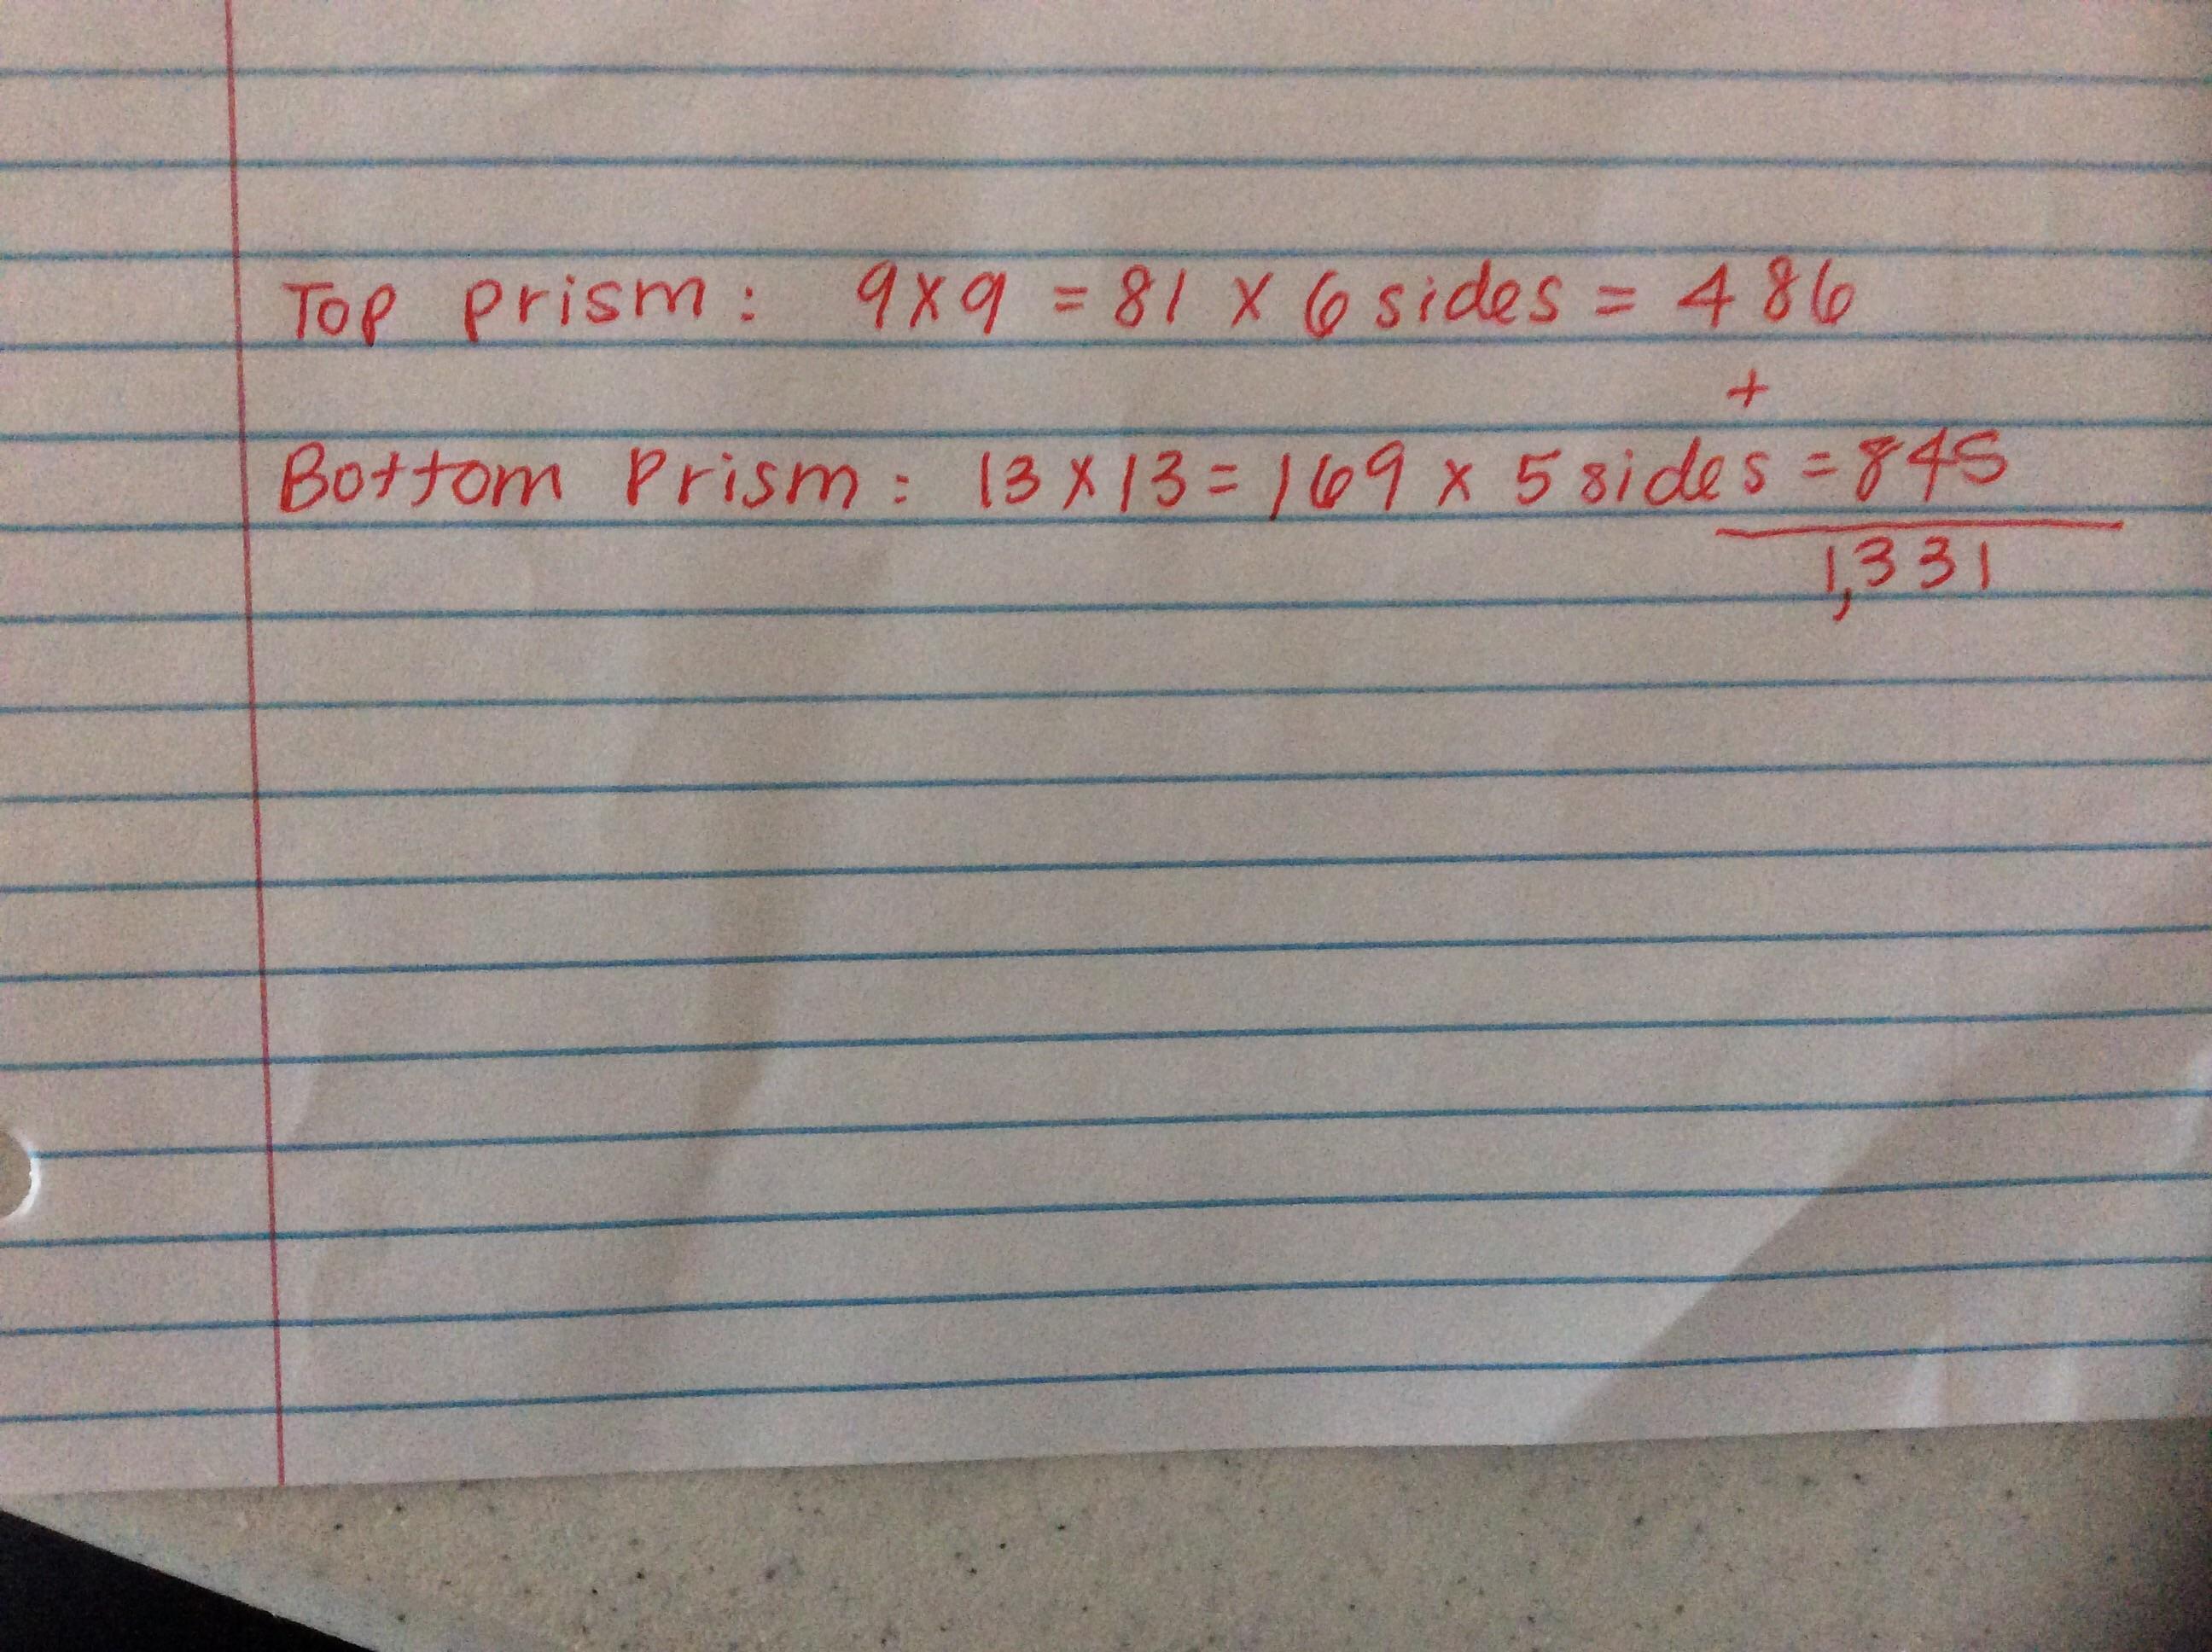 Top prism: 9x9 = 81 x 6 sides = 486
+
Bottom Prism: 13x13= 169 x 5 sides =845
1,331